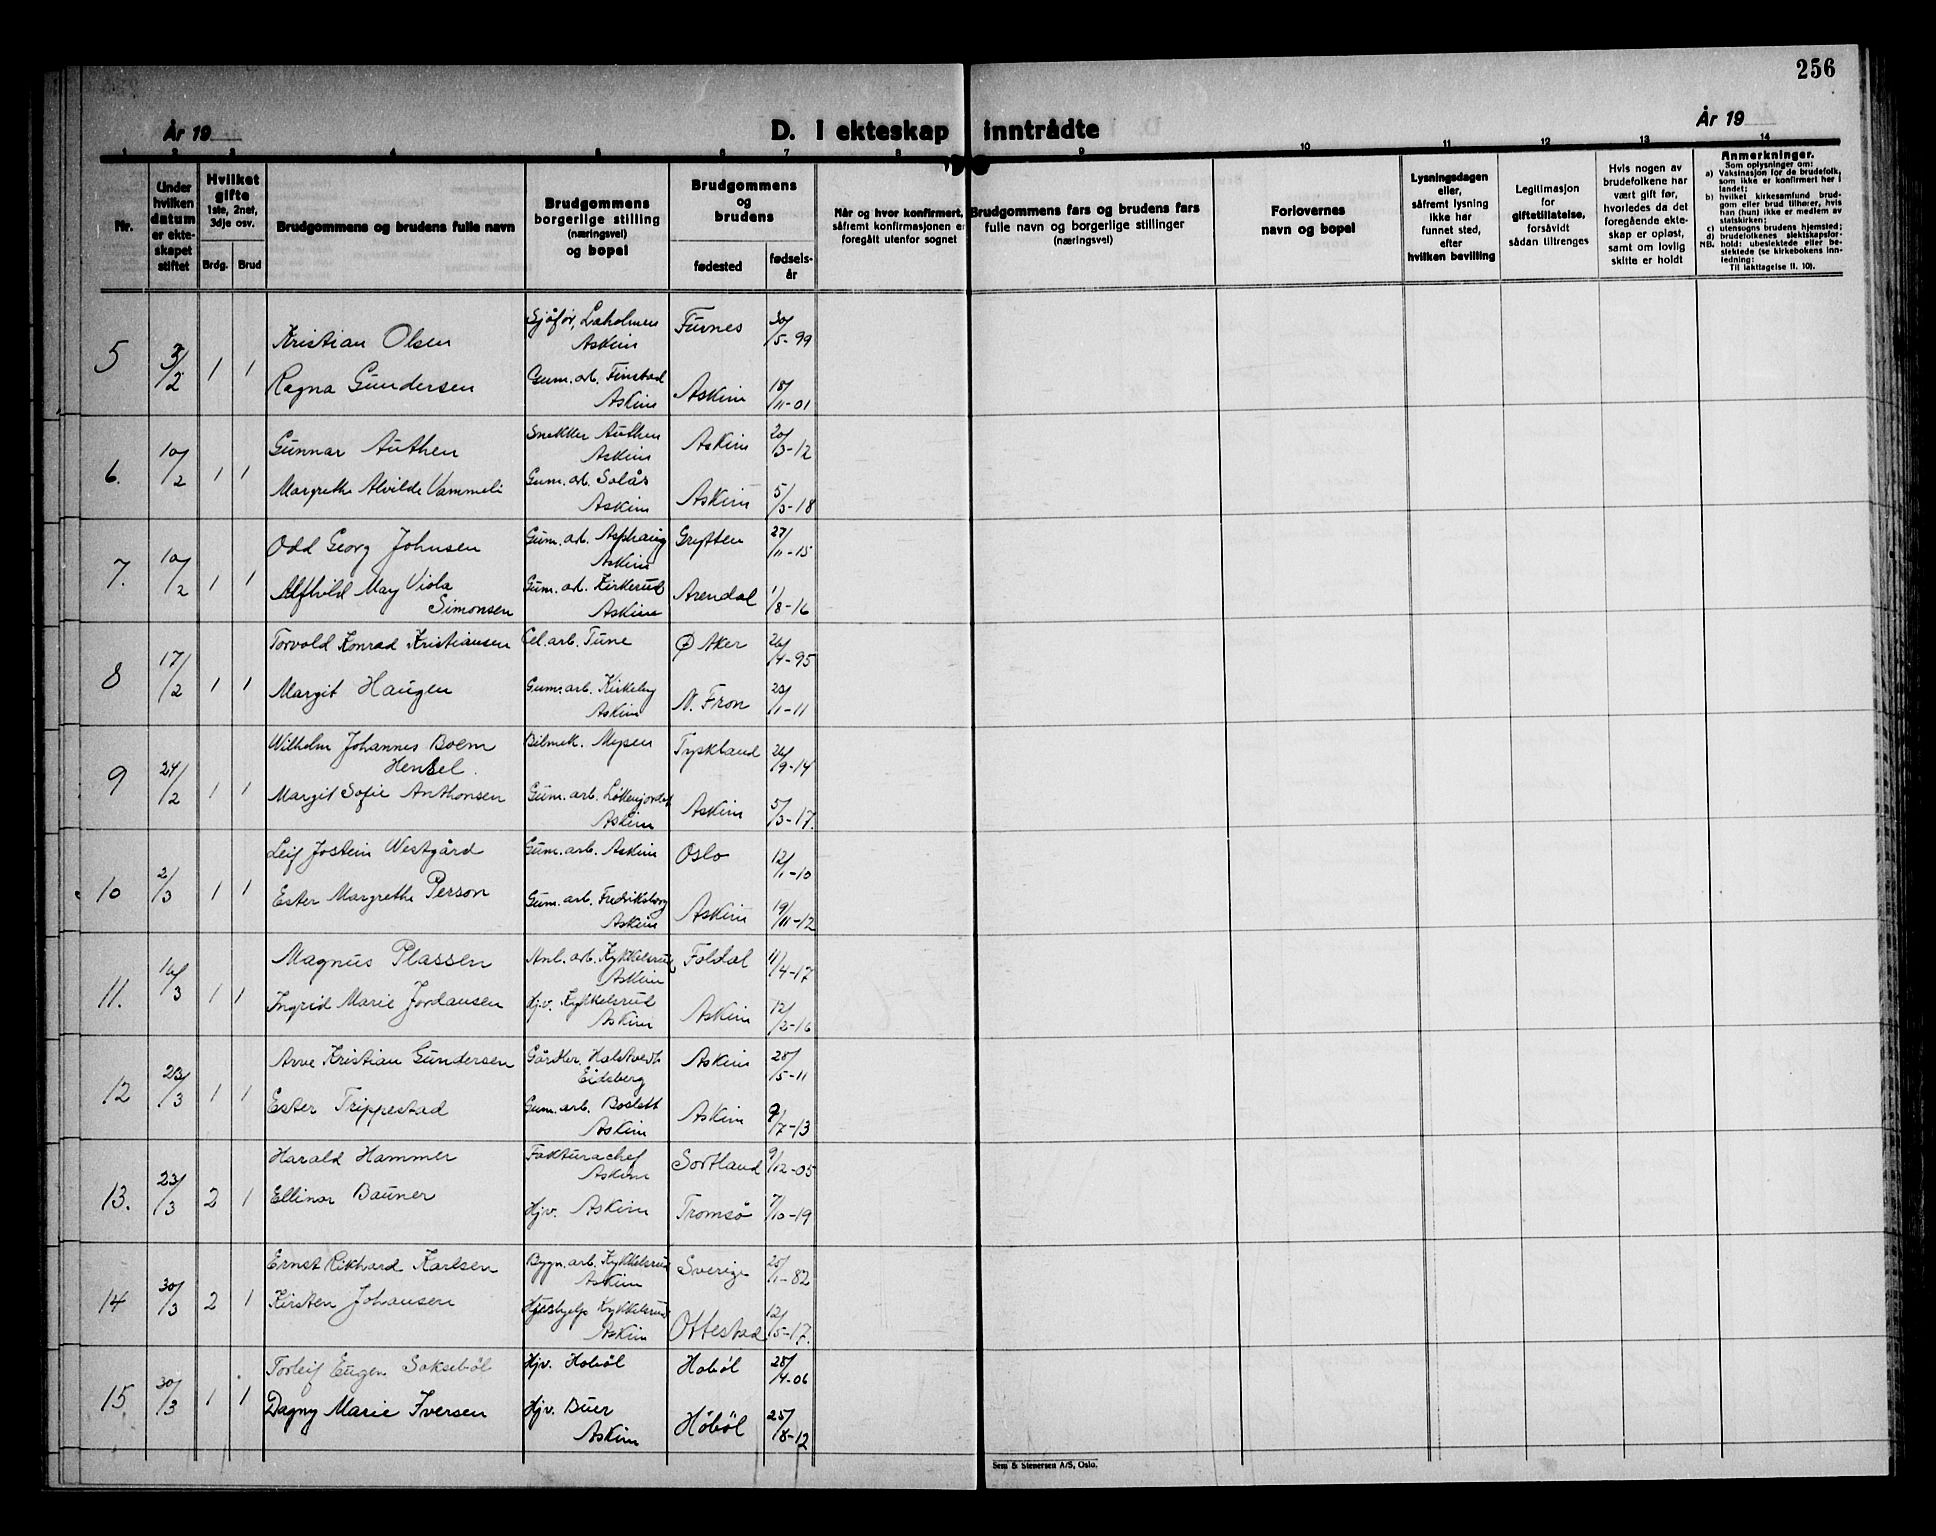 256
År 19
D. I ekteskap inntrådte
År 19
1 2 3 4 5 6 7 8 9 10 11 12 13 14
Nr.
Under hvilken datum er ekteskapet stiftet
Hvilket gifte 1ste, 2net, 3dje osv.
Brdg. Brud
Brudgommens og brudens fulle navn
Brudgommens borgerlige stilling (næringsvei) og bopel
Brudgommens og brudens
fødested
fødselsår
Når og hvor konfirmert, såfremt konfirmasjonen er foregått utenfor sognet
Brudgommens fars og brudens fars fulle navn og borgerlige stillinger (næringsvei)
Forlovernes navn og bopel
Lysningsdagen eller, såfremt lysning ikke har funnet sted, efter hvilken bevilling
Legitimasjon for giftetillatelse, forsåvidt sådan tiltrenges
Hvis nogen av brudefolkene har vært gift før, hvorledes da det foregående ekteskap er opløst, samt om lovlig skifte er holdt
Anmerkninger.
Som oplysninger om:
a) Vaksinasjon for de brudefolk, som ikke er konfirmert her i landet;
b) hvilket kirkesamfund brudgom eller brud tilhører, hvis han (hun) ikke er medlem av statskirken;
c) utensogns brudens hjemsted;
d) brudefolkenes slektskapsforhold: ubeslektede eller beslektede (se kirkebokens innledning;
NB. Til iakttagelse II. 10).
5 3/2 1 1 Kristian Olsen Sjåfør, Laholmen Askim Furnes 30/5-99
Ragna Gundersen Gum.arb. Finstad Askim Askim 18/11-01
6. 10/2 1 1 Gunnar Authen Snekker Authen Askim Askim 20/3-12
Margrethe Alvilde Vammeli Gum.arb. Solås Askim Askim 5/3-18
7. 10/2 1 1 Odd Georg Johnsen Gum.arb. Asphaug Askim Grytten 27/11-15
Alfhild May Viola Simonsen Gum.arb. Kirkerud Askim Arendal 1/8-16
8 17/2 1 1 Torvald Konrad Kristiansen Cel.arb. Tune Ø Aker 26/4-95
Margit Haugen Gum.arb. Kirkeby Askim N. Fron 23/1-11
9 24/2 1 1 Wilhelm Johannes Boem Hensel. Bilmek. Mysen Tyskland 26/9-14
Margit Sofie Anthonsen Gum.arb. Løkenjordet Askim Askim 5/3-17.
10 2/3 1 1 Leif Jostein Westgård Gum.arb. Askim Oslo 12/1-10
Ester Margrethe Person Gum.arb. Fredriksborg Askim Askim 19/11-12
11. 16/3 1 1 Magnus Plassen Anl.arb. Kykkelsrud Askim Foldal 11/4-17
Ingrid Marie Jordansen Hjv. Kykkelsrud Askim Askim 12/2-16
12 23/3 1 1 Arve Kristian Gundersen Gårdbr. Halstvedt Eidsberg Askim 28/5-11
Ester Trippestad Gum.arb. Boslett Askim Askim 9/7-13
13. 23/3 2 1 Harald Hammer Fakturachef Askim Sortland 9/12-05
Ellinor Bauner Hjv. Askim Tromsø 7/10-19
14 30/3 2 1 Ernst Rikhard Karlsen Bygn.arb. Kykkelsrud Askim Sverige 25/1-82
Kirsten Johansen Hushjelp Kykkelsrud Askim Ottestad 12/5-17.
15 30/3 1 1 Torleif Eugen Saksebøl Hjv. Hobøl Hobøl 28/4-06
Dagny Marie Iversen Hjv. Buer Askim Hobøl 25/8-12
Sem & Stenersen A/S, Oslo.